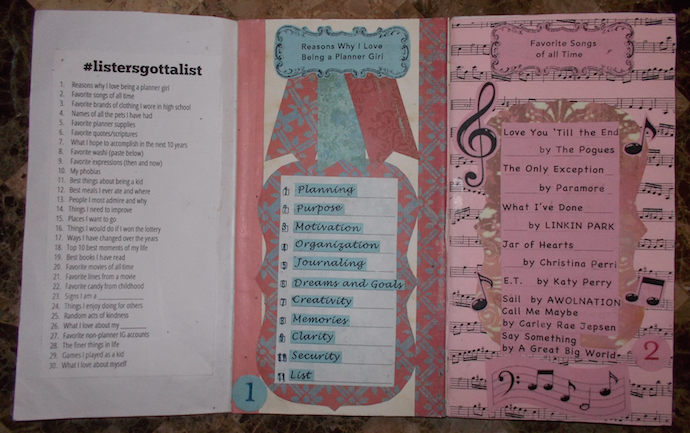 #listersgottalist
1. Reasons why I love being a planner girl
2. Favorite songs of all time
3. Favorite brands of clothing I wore in high school
4. Names of all the pets I have had
5. Favorite planner supplies
6. Favorite quotes/scriptures
7. What I hope to accomplish in the next 10 years
8. Favorite washi (paste below)
9. Favorite expressions (then and now)
10. My phobias
11. Best things about being a kid
12. Best meals I ever ate and where
13. People I most admire and why
14. Things I need to improve
15. Places I want to go
16. Things I would do if I won the lottery
17. Ways I have changed over the years
18. Top 10 best moments of my life
19. Best books I have read
20. Favorite movies of all-time
21. Favorite lines from a movie
22. Favorite candy from childhood
23. Signs I am a ________
24. Things I enjoy doing for others
25. Random acts of kindness
26. What I love about my ________
27. Favorite non-planner IG accounts
28. The finer things in life
29. Games I played as a kid
30. What I love about myself
Reasons Why I Love
Being a Planner Girl
1 Planning
2 Purpose
3 Motivation
4 Organization
5 Journaling
6 Dreams and Goals
7 Creativity
8 Memories
9 Clarity
10 Security
11 List
1
Favorite Songs
of all Time
Love You 'Till the End
by The Pogues
The Only Exception
by Paramore
What I've Done
by LINKIN PARK
Jar of Hearts
by Christina Perri
E.T. by Katy Perry
Sail by AWOLNATION
Call Me Maybe
by Carley Rae Jepsen
Say Something
by A Great Big World
2